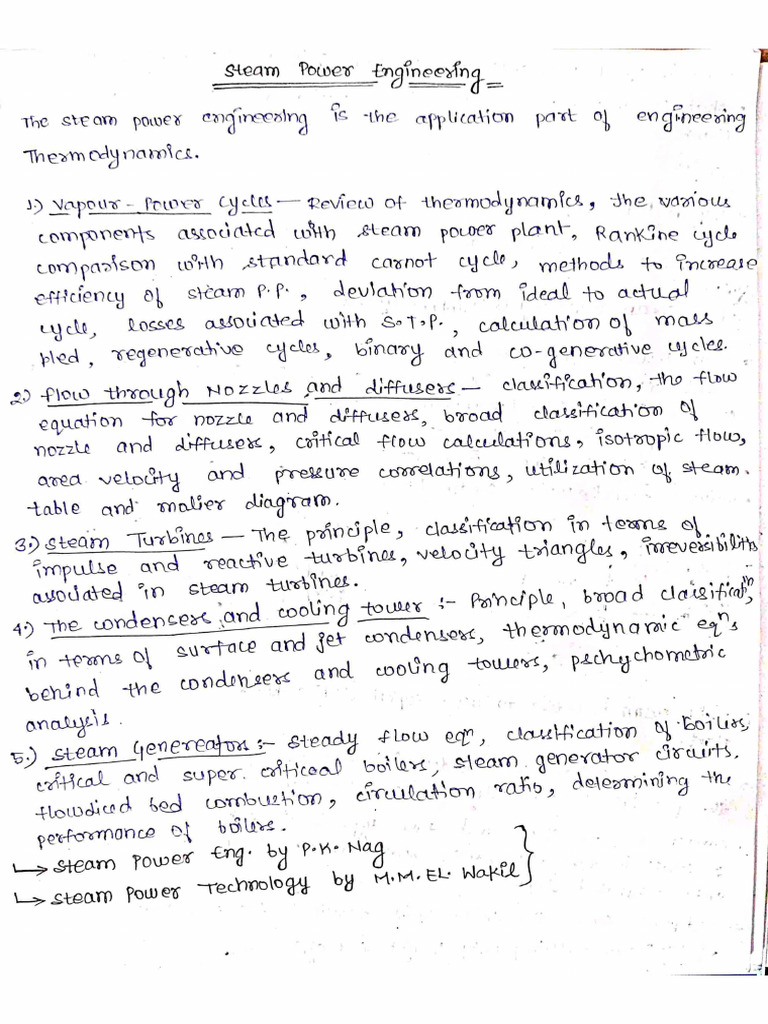 Steam Power Engineering
The steam power engineering is the application part of engineering
Thermodynamics.
1.) Vapour-Power Cycles — Review of thermodynamics, the various
components associated with steam power plant, Rankine cycle
comparison with standard carnot cycle, methods to increase
efficiency of steam P.P., deviation from ideal to actual
cycle, losses associated with S.T.P., calculation of mass
bled, regenerative cycles, binary and co-generative cycles.
2.) flow through Nozzles and diffusers — classification, the flow
equation for nozzle and diffusers, broad classification of
nozzle and diffusers, critical flow calculations, isotropic flow,
area velocity and pressure correlations, utilization of steam.
table and molier diagram.
3.) Steam Turbines — The principle, classification in terms of
impulse and reactive turbines, velocity triangles, irreversibilities
associated in steam turbines.
4.) The condensers and cooling tower :- Principle, broad classificatiⁿ,
in terms of surface and jet condensers, thermodynamic eqⁿs
behind the condensers and cooling towers, pschychometric
analysis.
5.) Steam Genereators :- steady flow eqⁿ, classification of Boilers,
critical and super. criticoal boilers, steam generator circuits.
flowdiced bed combustion, circulation ratio, determining the
performance of boilers.
↳ Steam Power Eng. by P.K. Nag
↳ Steam Power Technology by M.M. EL. Wakil }